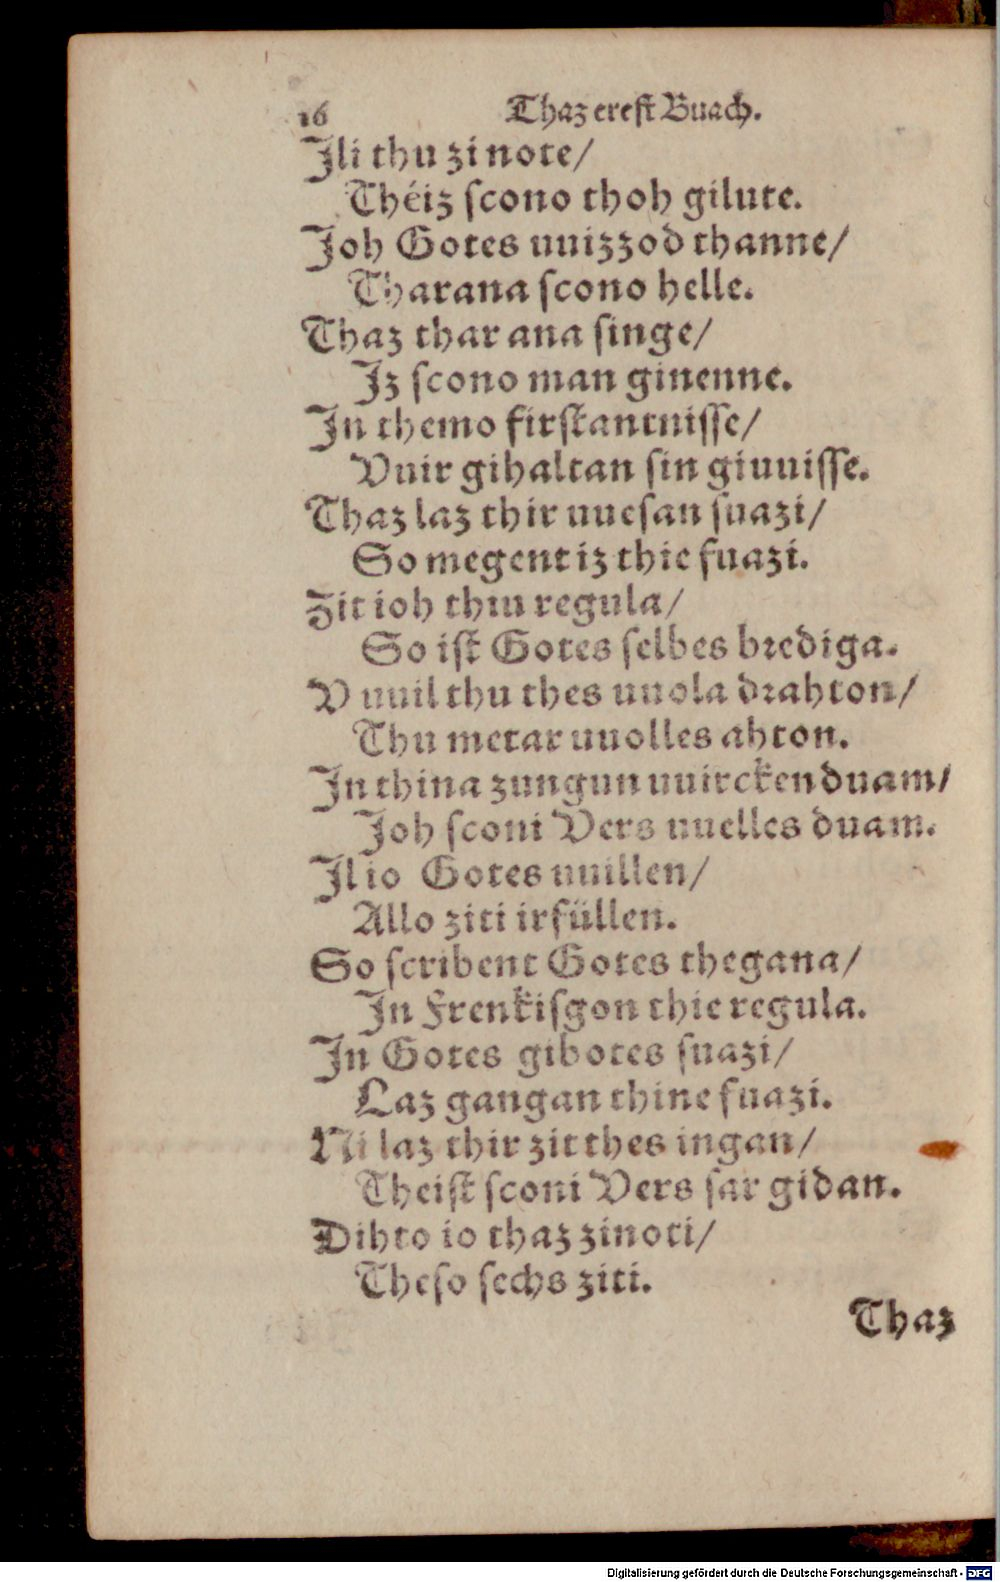 16 Thaz erest Buach.
Jli thu zi note/
Théiz scono thoh gilute.
Joh Gotes uuizzod thanne/
Tharana scono helle.
Thaz thar ana singe/
Jz scono man ginenne.
Jn themo firstantnisse/
Vuir gihaltan sin giuuisse.
Thaz laz thir uuesan suazi/
So megent iz thie fuazi.
Zit ioh thiu regula/
So ist Gotes selbes brediga.
V uuil thu thes uuola drahton/
Thu metar uuolles ahton.
Jn thina zungun uuircken duam/
Joh sconi Vers uuelles duam.
Jl io Gotes uuillen/
Allo ziti irfüllen.
So scribent Gotes thegana/
Jn Frenkisgon thie regula.
Jn Gotes gibotes suazi/
Laz gangan thine fuazi.
Ni laz thir zit thes ingan/
Theist sconi Vers sar gidan.
Dihto io thaz zi noti/
Theso sechs ziti.
Thaz
Digitalisierung gefördert durch die Deutsche Forschungsgemeinschaft - DFG